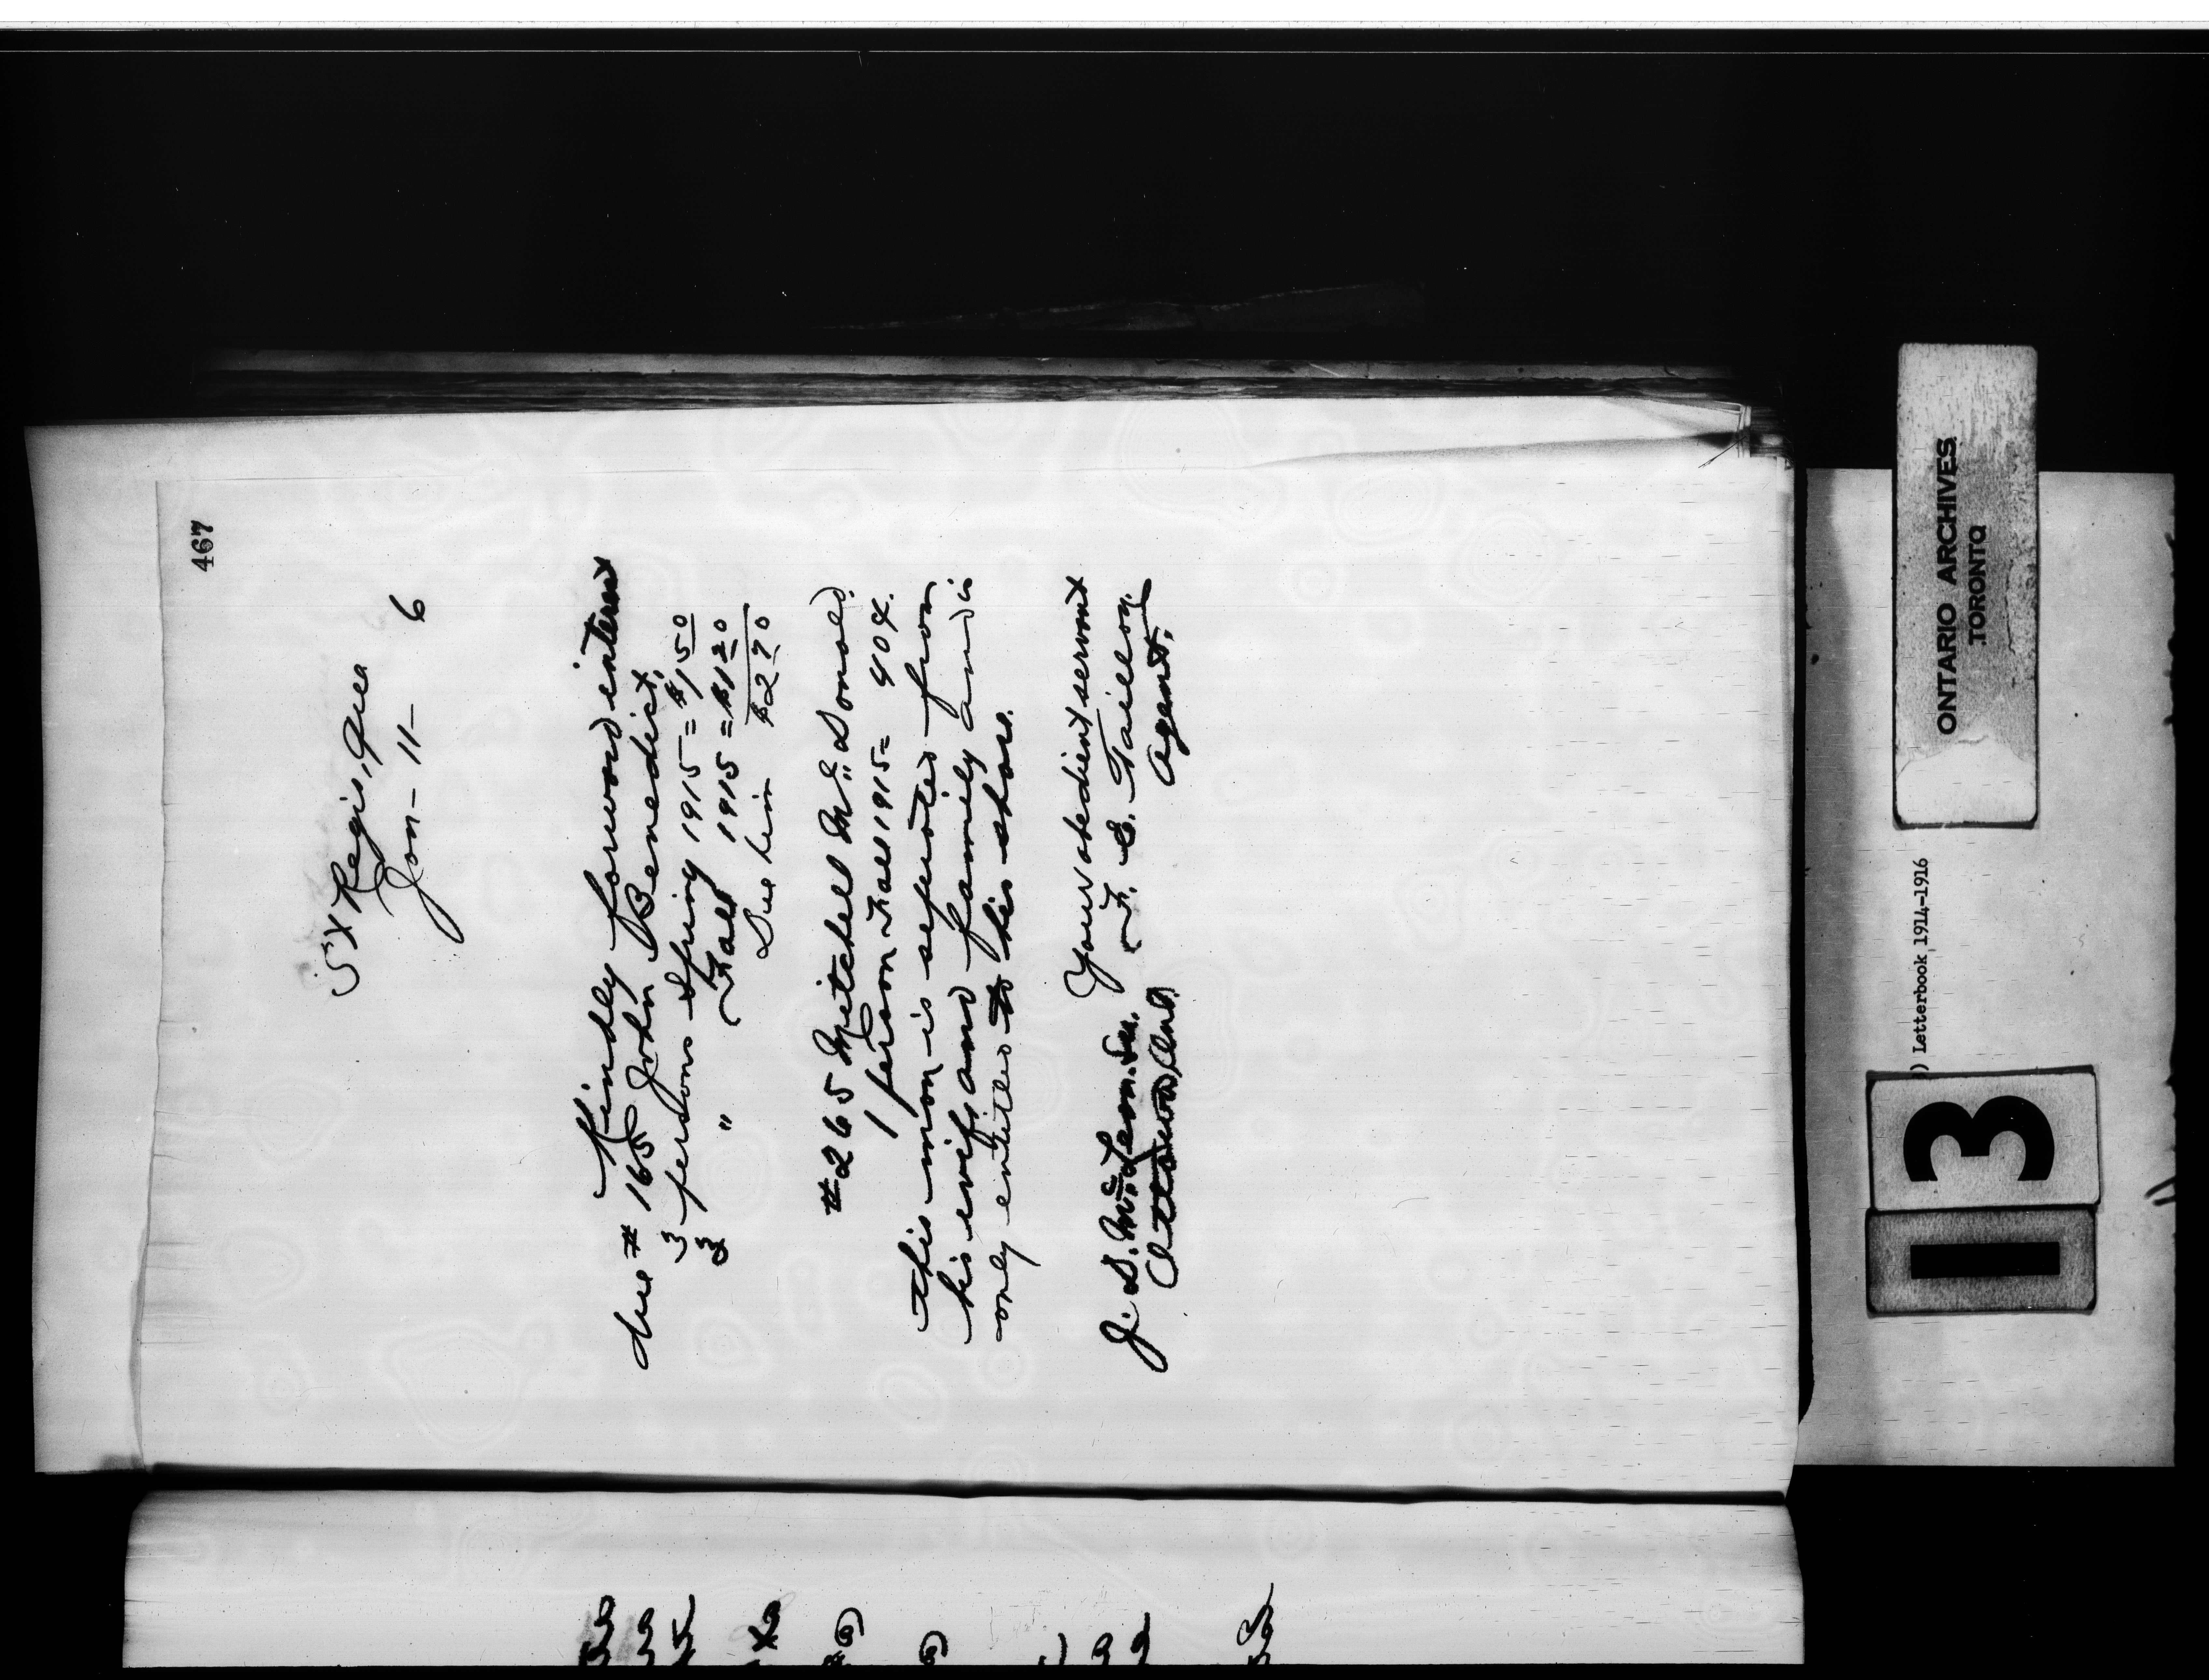 467
St Regis, Que
Jan - 11 - 6
Kindly forward interest
due # 165 John Benedict,
3 persons Spring 1915 = $1 50
3 " Fall 1915 = $1 20
Due him $2 70
#265 Mitchell Mc Donald.
1 person Fall 1915 = 40¢.
this man is separated from
his wife and family and is
only entitled to his share.
Your obedient servant
J. D. McLean. Sec. F. E. Taillon.
Ottawa, Ont. Agent.
ONTARIO ARCHIVES
TORONTO
) Letterbook 1914-1916
13